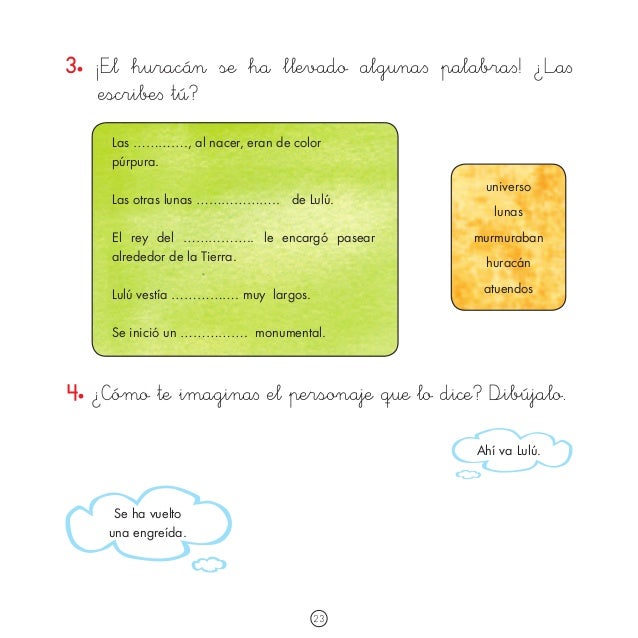 3. ¡El huracán se ha llevado algunas palabras! ¿Las
escribes tú?
Las ............., al nacer, eran de color
púrpura.
Las otras lunas .................... de Lulú.
El rey del ................. le encargó pasear
alrededor de la Tierra.
Lulú vestía ................ muy largos.
Se inició un ................ monumental.
universo
lunas
murmuraban
huracán
atuendos
4. ¿Cómo te imaginas el personaje que lo dice? Dibújalo.
Ahí va Lulú.
Se ha vuelto
una engreída.
23